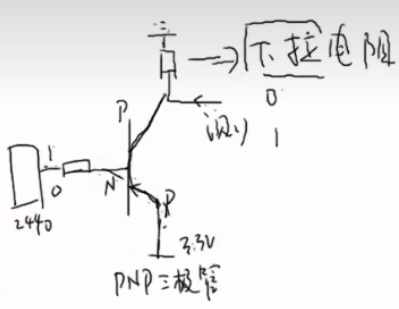 下拉电阻
0
测 1
P
1
0
N
P
2440
3.3V
PNP三极管